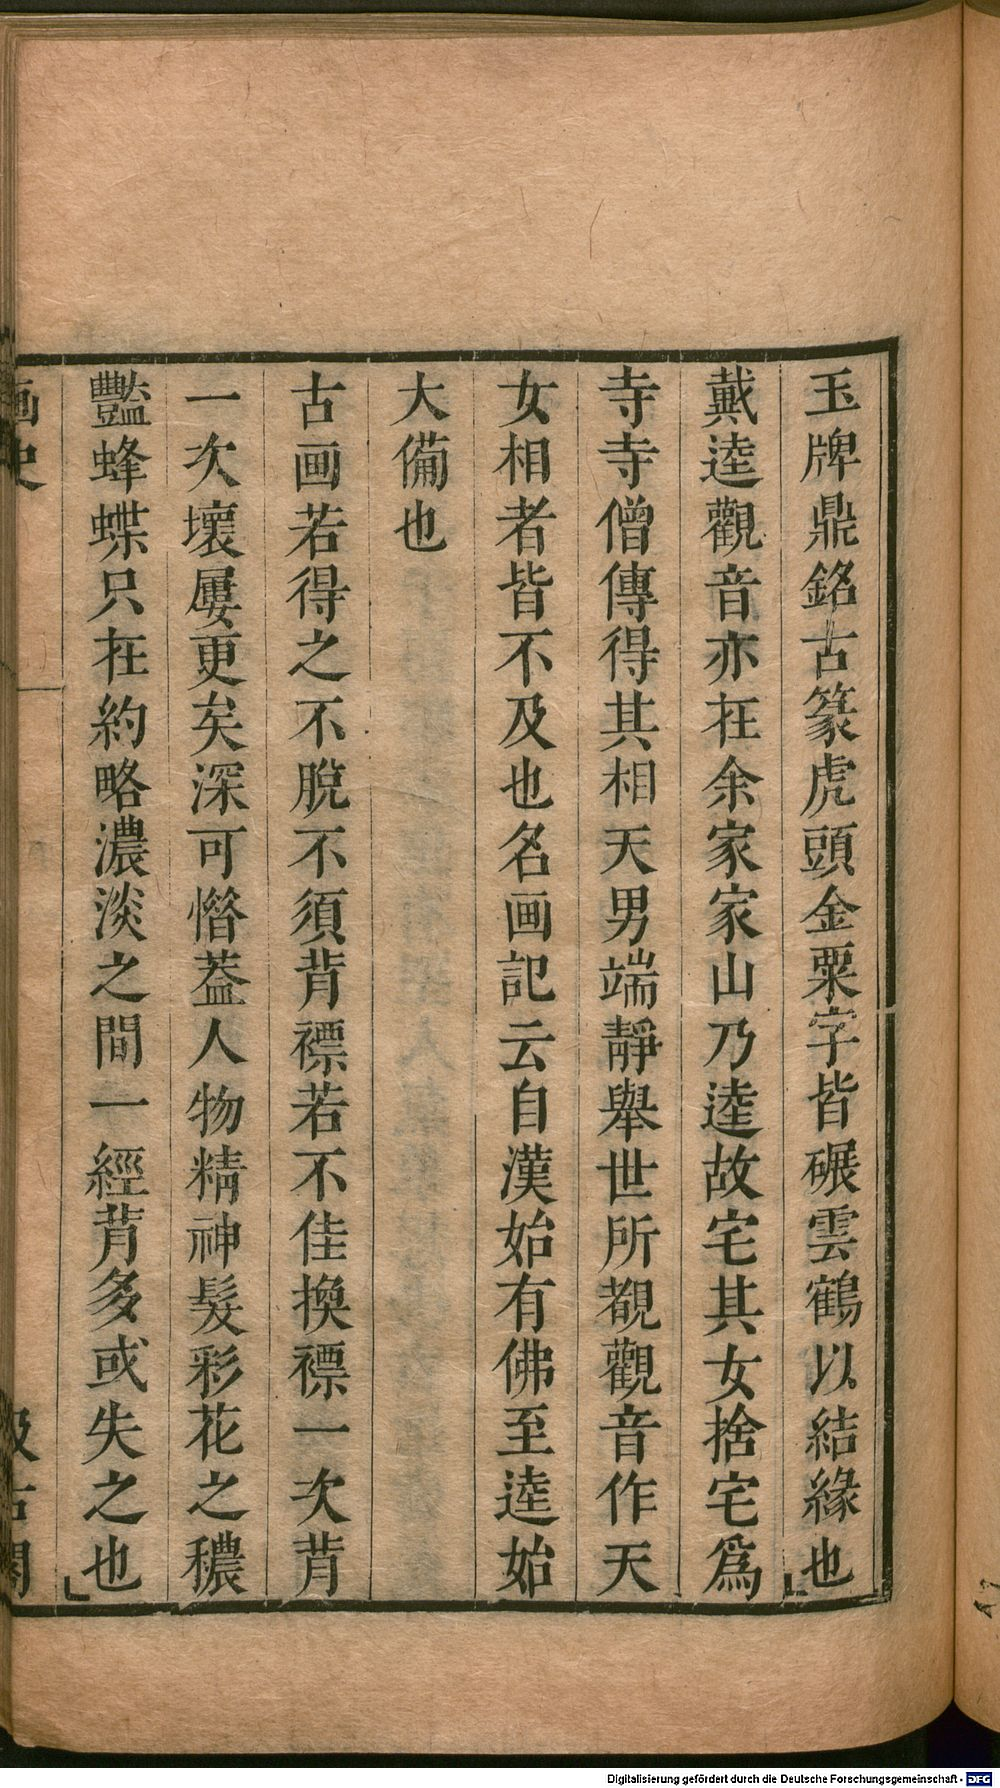 玉牌鼎銘古篆虎頭金粟字皆碾雲鶴以結緣也
戴逵觀音亦在余家家山乃逵故宅其女捨宅爲
寺寺僧傳得其相天男端靜舉世所覩觀音作天
女相者皆不及也名画記云自漢始有佛至逵始
大備也
古画若得之不脫不須背褾若不佳換褾一次背
一次壞屢更矣深可惜葢人物精神髮彩花之穠
豔蜂蝶只在約略濃淡之間一經背多或失之也
画史
汲古閣
Digitalisierung gefördert durch die Deutsche Forschungsgemeinschaft - DFG